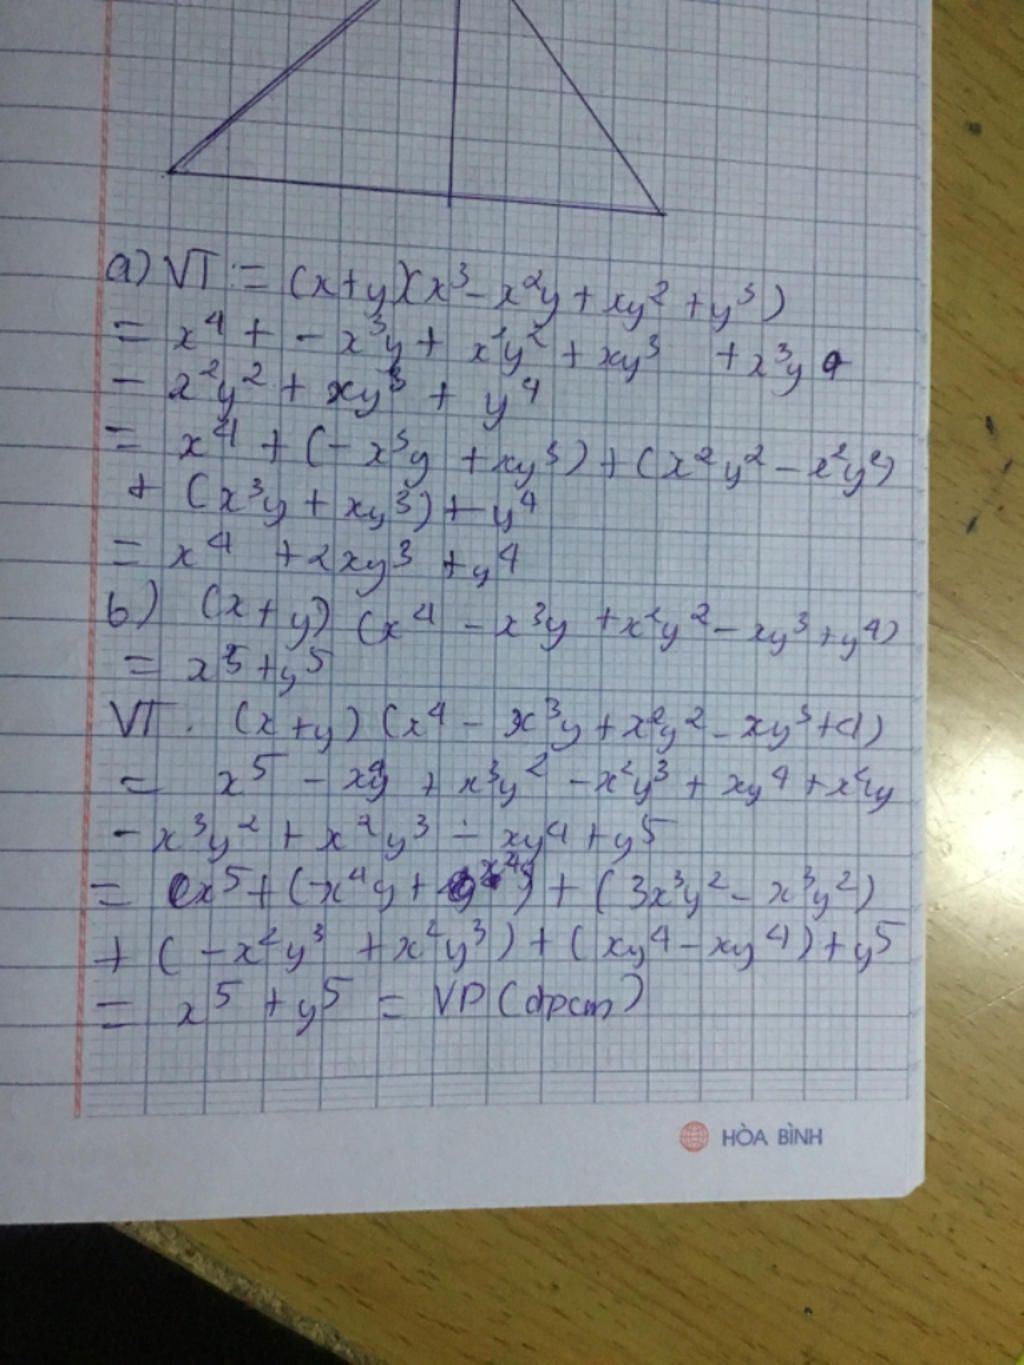 a) VT := (x+y)(x³ - x²y + xy² + y³)
= x⁴ + - x³y + x²y² + xy³ + x³y
- x²y² + xy³ + y⁴
= x⁴ + (-x³y + xy³) + (x²y² - x²y²)
+ (x³y + xy³) + y⁴
= x⁴ + 2xy³ + y⁴
b) (x+y) (x⁴ - x³y + x²y² - xy³ + y⁴)
= x⁵ + y⁵
VT. (x+y) (x⁴ - x³y + x²y² - xy³ +
= x⁵ - + x³y² - x²y³ + xy⁴ + x⁴y
- x³y² + x²y³ - xy⁴ + y⁵
= x⁵ + (-x⁴y + x⁴y) + (3x³y² - x³y²)
+ (-x²y³ + x²y³) + (xy⁴ - xy⁴) + y⁵
= x⁵ + y⁵ = VP (đpcm)
HÒA BÌNH